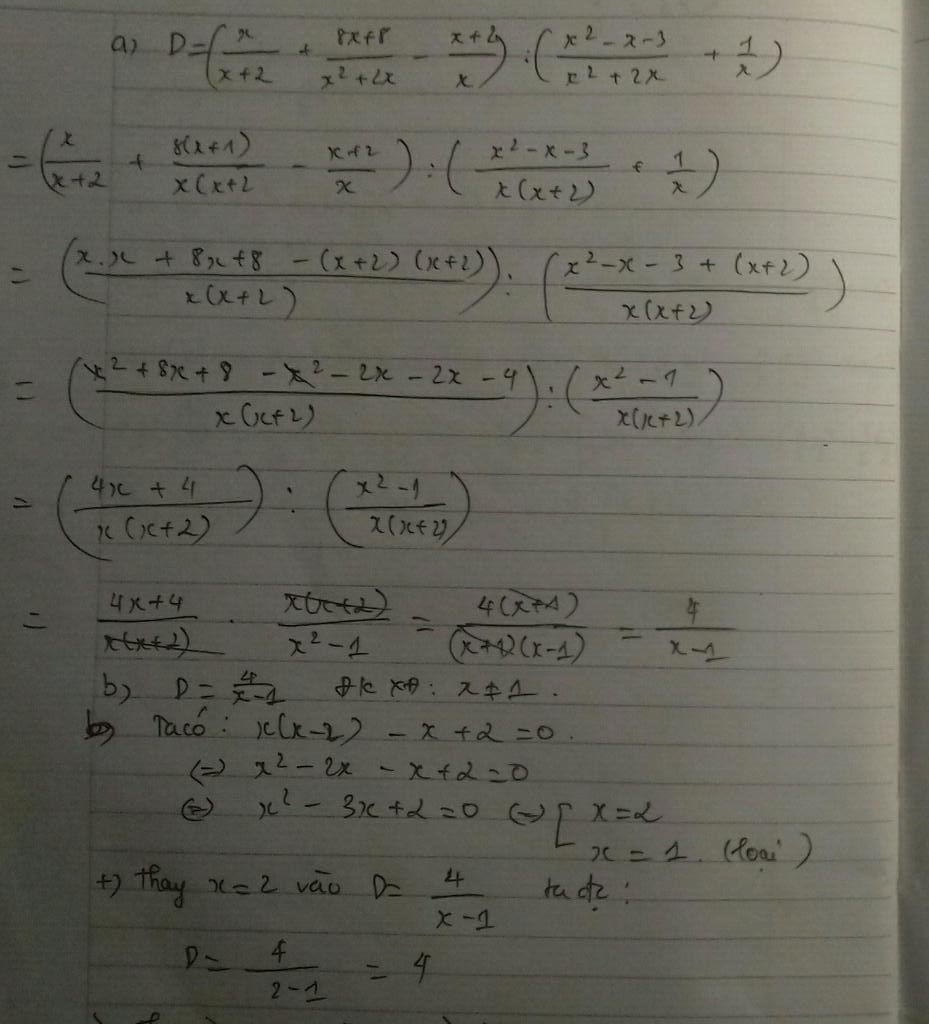 a) D = (x/(x+2) + (8x+8)/(x²+2x) - (x+2)/x) : ((x²-x-3)/(x²+2x) + 1/x)
= (x/(x+2) + 8(x+1)/(x(x+2) - (x+2)/x) : ((x²-x-3)/(x(x+2)) + 1/x)
= ((x.x + 8x+8 - (x+2)(x+2))/(x(x+2))) : ((x²-x-3+(x+2))/(x(x+2)))
= ((x²+8x+8-x²-2x-2x-4)/(x(x+2))) : ((x²-1)/(x(x+2)))
= ((4x+4)/(x(x+2))) : ((x²-1)/(x(x+2)))
= (4x+4)/(x(x+2)) . x(x+2)/(x²-1) = 4(x+1)/((x+1)(x-1)) = 4/(x-1)
b) D = 4/(x-1) đk xđ: x ≠ 1.
Ta có: x(x-2) - x + 2 = 0.
(=) x² - 2x - x + 2 = 0
(=) x² - 3x + 2 = 0 (=) [ x = 2
x = 1. (loại)
+) thay x = 2 vào D = 4/(x-1) ta đc:
D = 4/(2-1) = 4